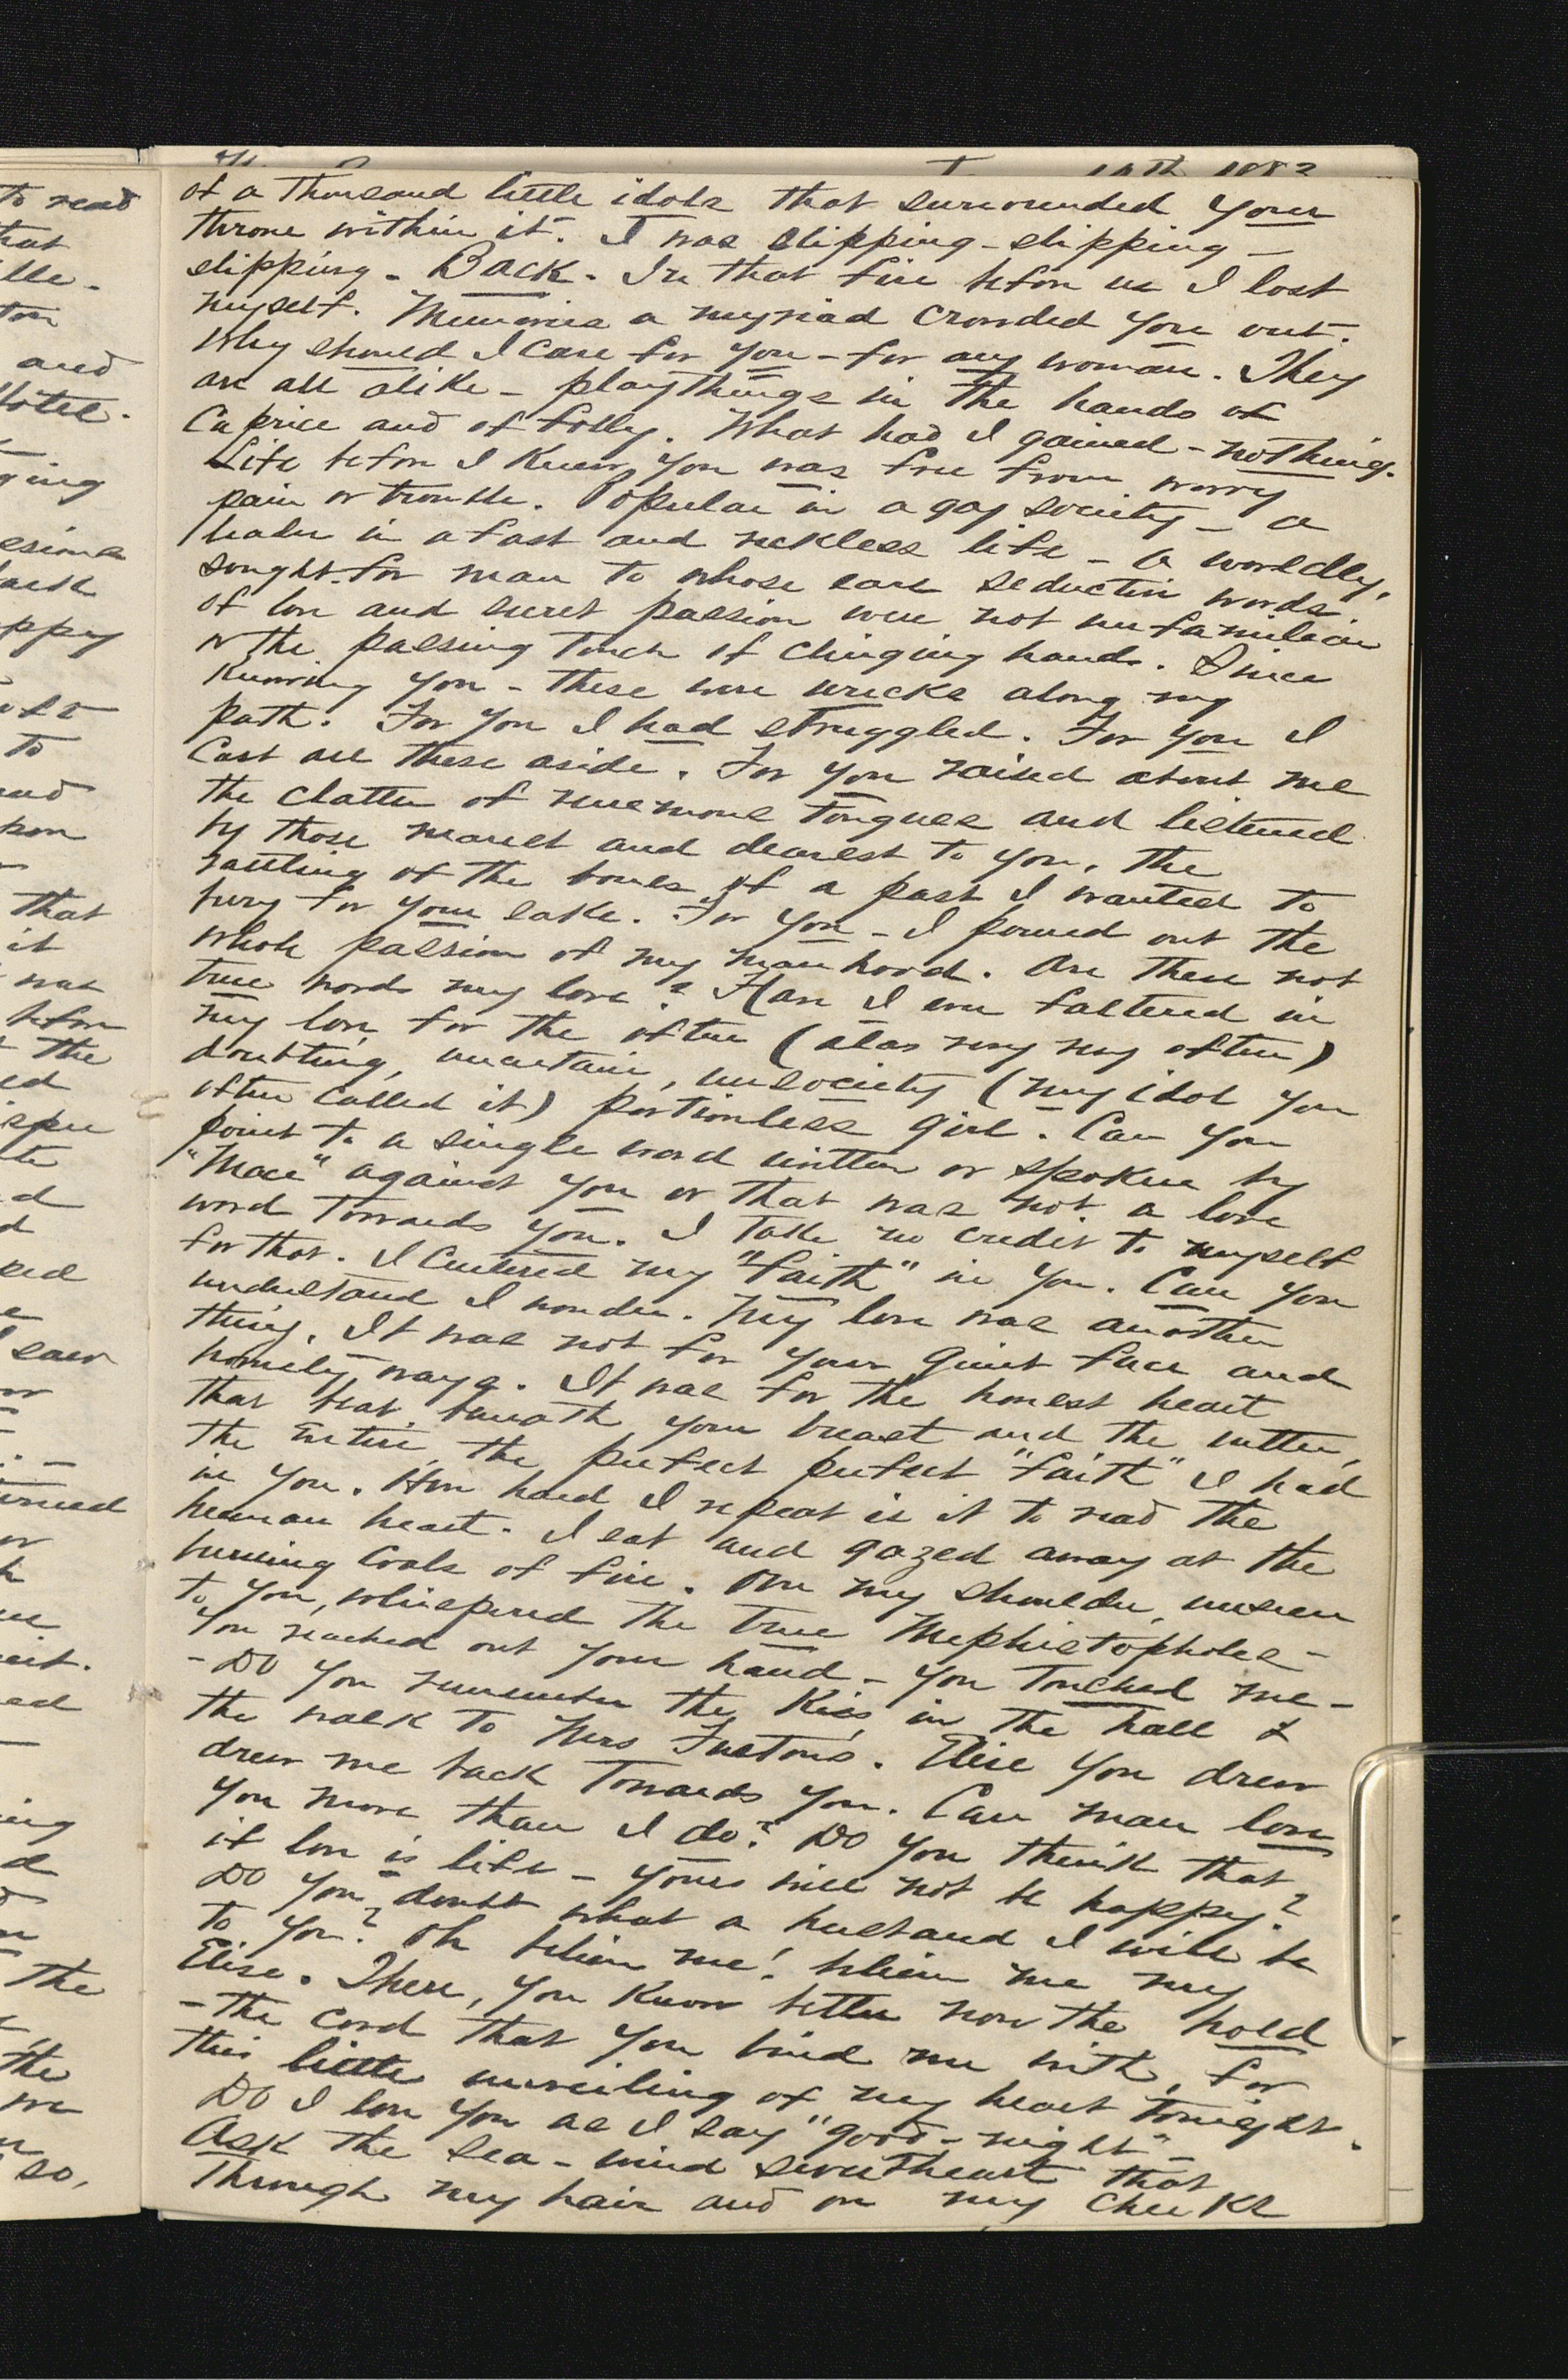 of a thousand little idols that surrounded your
throne within it. I was slipping - slipping -
slipping - Back. In that fire before us I lost
myself. Memories a myriad crowded you out.
Why should I care for you - for any woman. They
are all alike - playthings in the hands of
Caprice and of folly. What had I gained - nothing.
Life before I knew you was free from worry
pain or trouble. Popular in a gay society - a
leader in a fast and reckless life - a worldly,
sought-for man to whose ears seductive words
of love and secret passion were not unfamiliar
or the passing touch of clinging hands. Since
knowing you - these were wrecks along my
path. For you I had struggled. For you I
Cast all these aside. For you raised about me
the clatter of venemous tongues and listened
by those nearest and dearest to you, the
rattling of the bones of a past I wanted to
bury for your sake. For you - I poured out the
whole passion of my manhood. Are these not
true words my love? Have I ever faltered in
my love for the often (alas very very often)
doubting, uncertain, unsociety (my idol you
often called it) portionless girl. Can you
point to a single word written or spoken by
"Mace" against you or that was not a love
word towards you. I take no credit to myself
for that. I Centered my "faith" in you. Can you
understand I wonder. My love was another
thing. It was not for your quiet face and
homely ways. It was for the honest heart
that beat beneath your breast and the utter,
the entire, the perfect perfect "faith" I had
in you. How hard I repeat is it to read the
human heart. I sat and gazed away at the
burning Coals of fire. Over my shoulder, unseen
to you, whispered the true Mephistopholes -
You reached out your hand - you touched me -
- Do you remember the kiss in the hall &
the walk to Mrs Fustons. Elise you drew
drew me back towards you. Can man love
you more than I do? Do you think that
if love is life - yours will not be happy?
Do you doubt what a husband I will be
to you? Oh believe me! believe me my
Elise. There, you know better now the hold
- the Cord that you bind me with, for
this little unveiling of my heart tonight.
Do I love you as I say "good-night" -
Ask the sea-wind sweetheart that
through my hair and on my cheeks